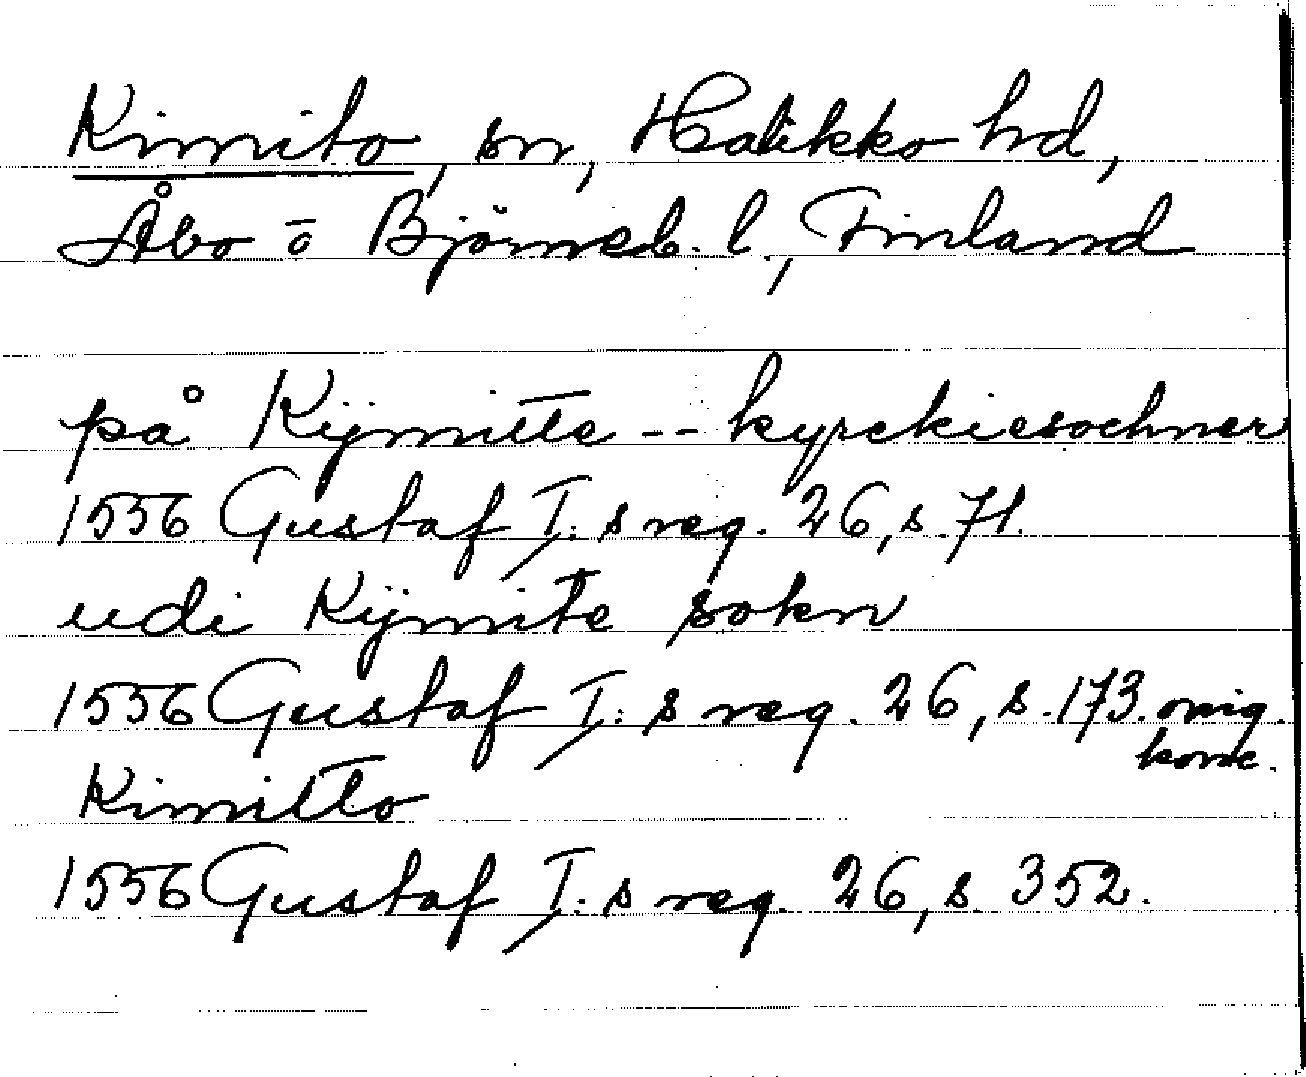 Kimito, sn, Halikko hd,
Åbo o Björneb. l., Finland
på Kijmitte -- kyrckiesochner
1556 Gustaf I:s reg. 26, s. 71.
udi Kijmite sokn
1556 Gustaf I:s reg. 26, s. 173. orig.
konc.
Kimitto
1556 Gustaf I:s reg. 26, s. 352.